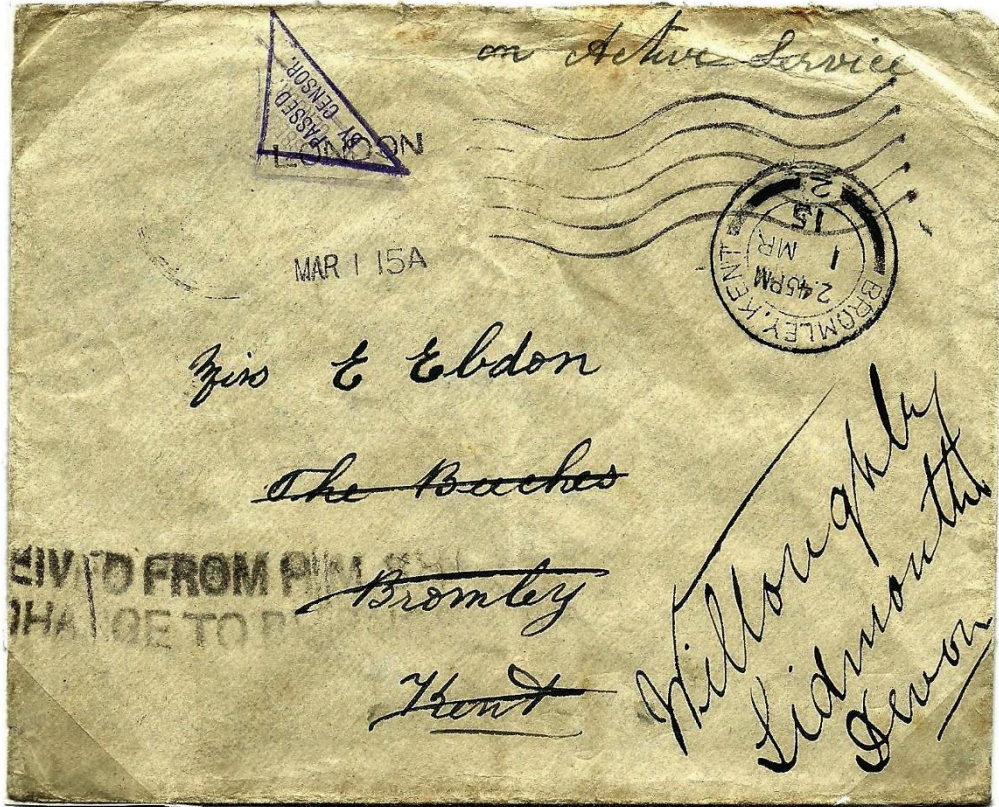 on Active Service
PASSED
BY CENSOR.
LONDON
MAR 1 15A
BROMLEY, KENT
2.45PM
1 MR
15
2
Miss E Ebdon
The Beeches
Bromley
Kent
EIV D FROM
CHA GE TO
Willoughby
Sidmouth
Devon